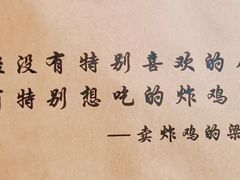 没有特别喜欢的
有特别想吃的炸鸡
—卖炸鸡的梁